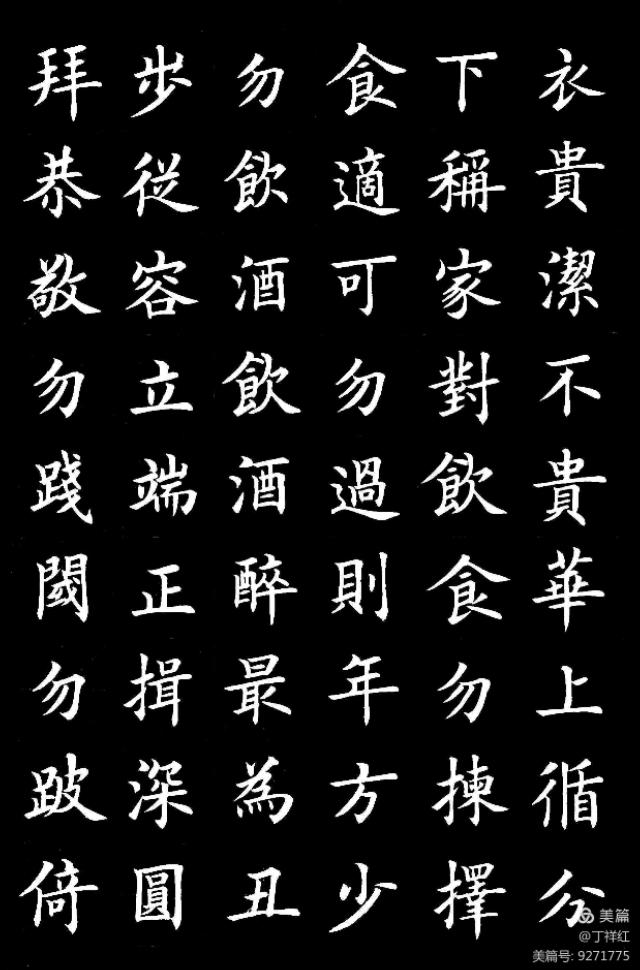 衣貴潔不貴華上循分
下稱家對飲食勿揀擇
食適可勿過則年方少
勿飲酒飲酒醉最為丑
步從容立端正揖深圓
拜恭敬勿踐閾勿跛倚
美篇
@丁祥红
美篇号: 9271775